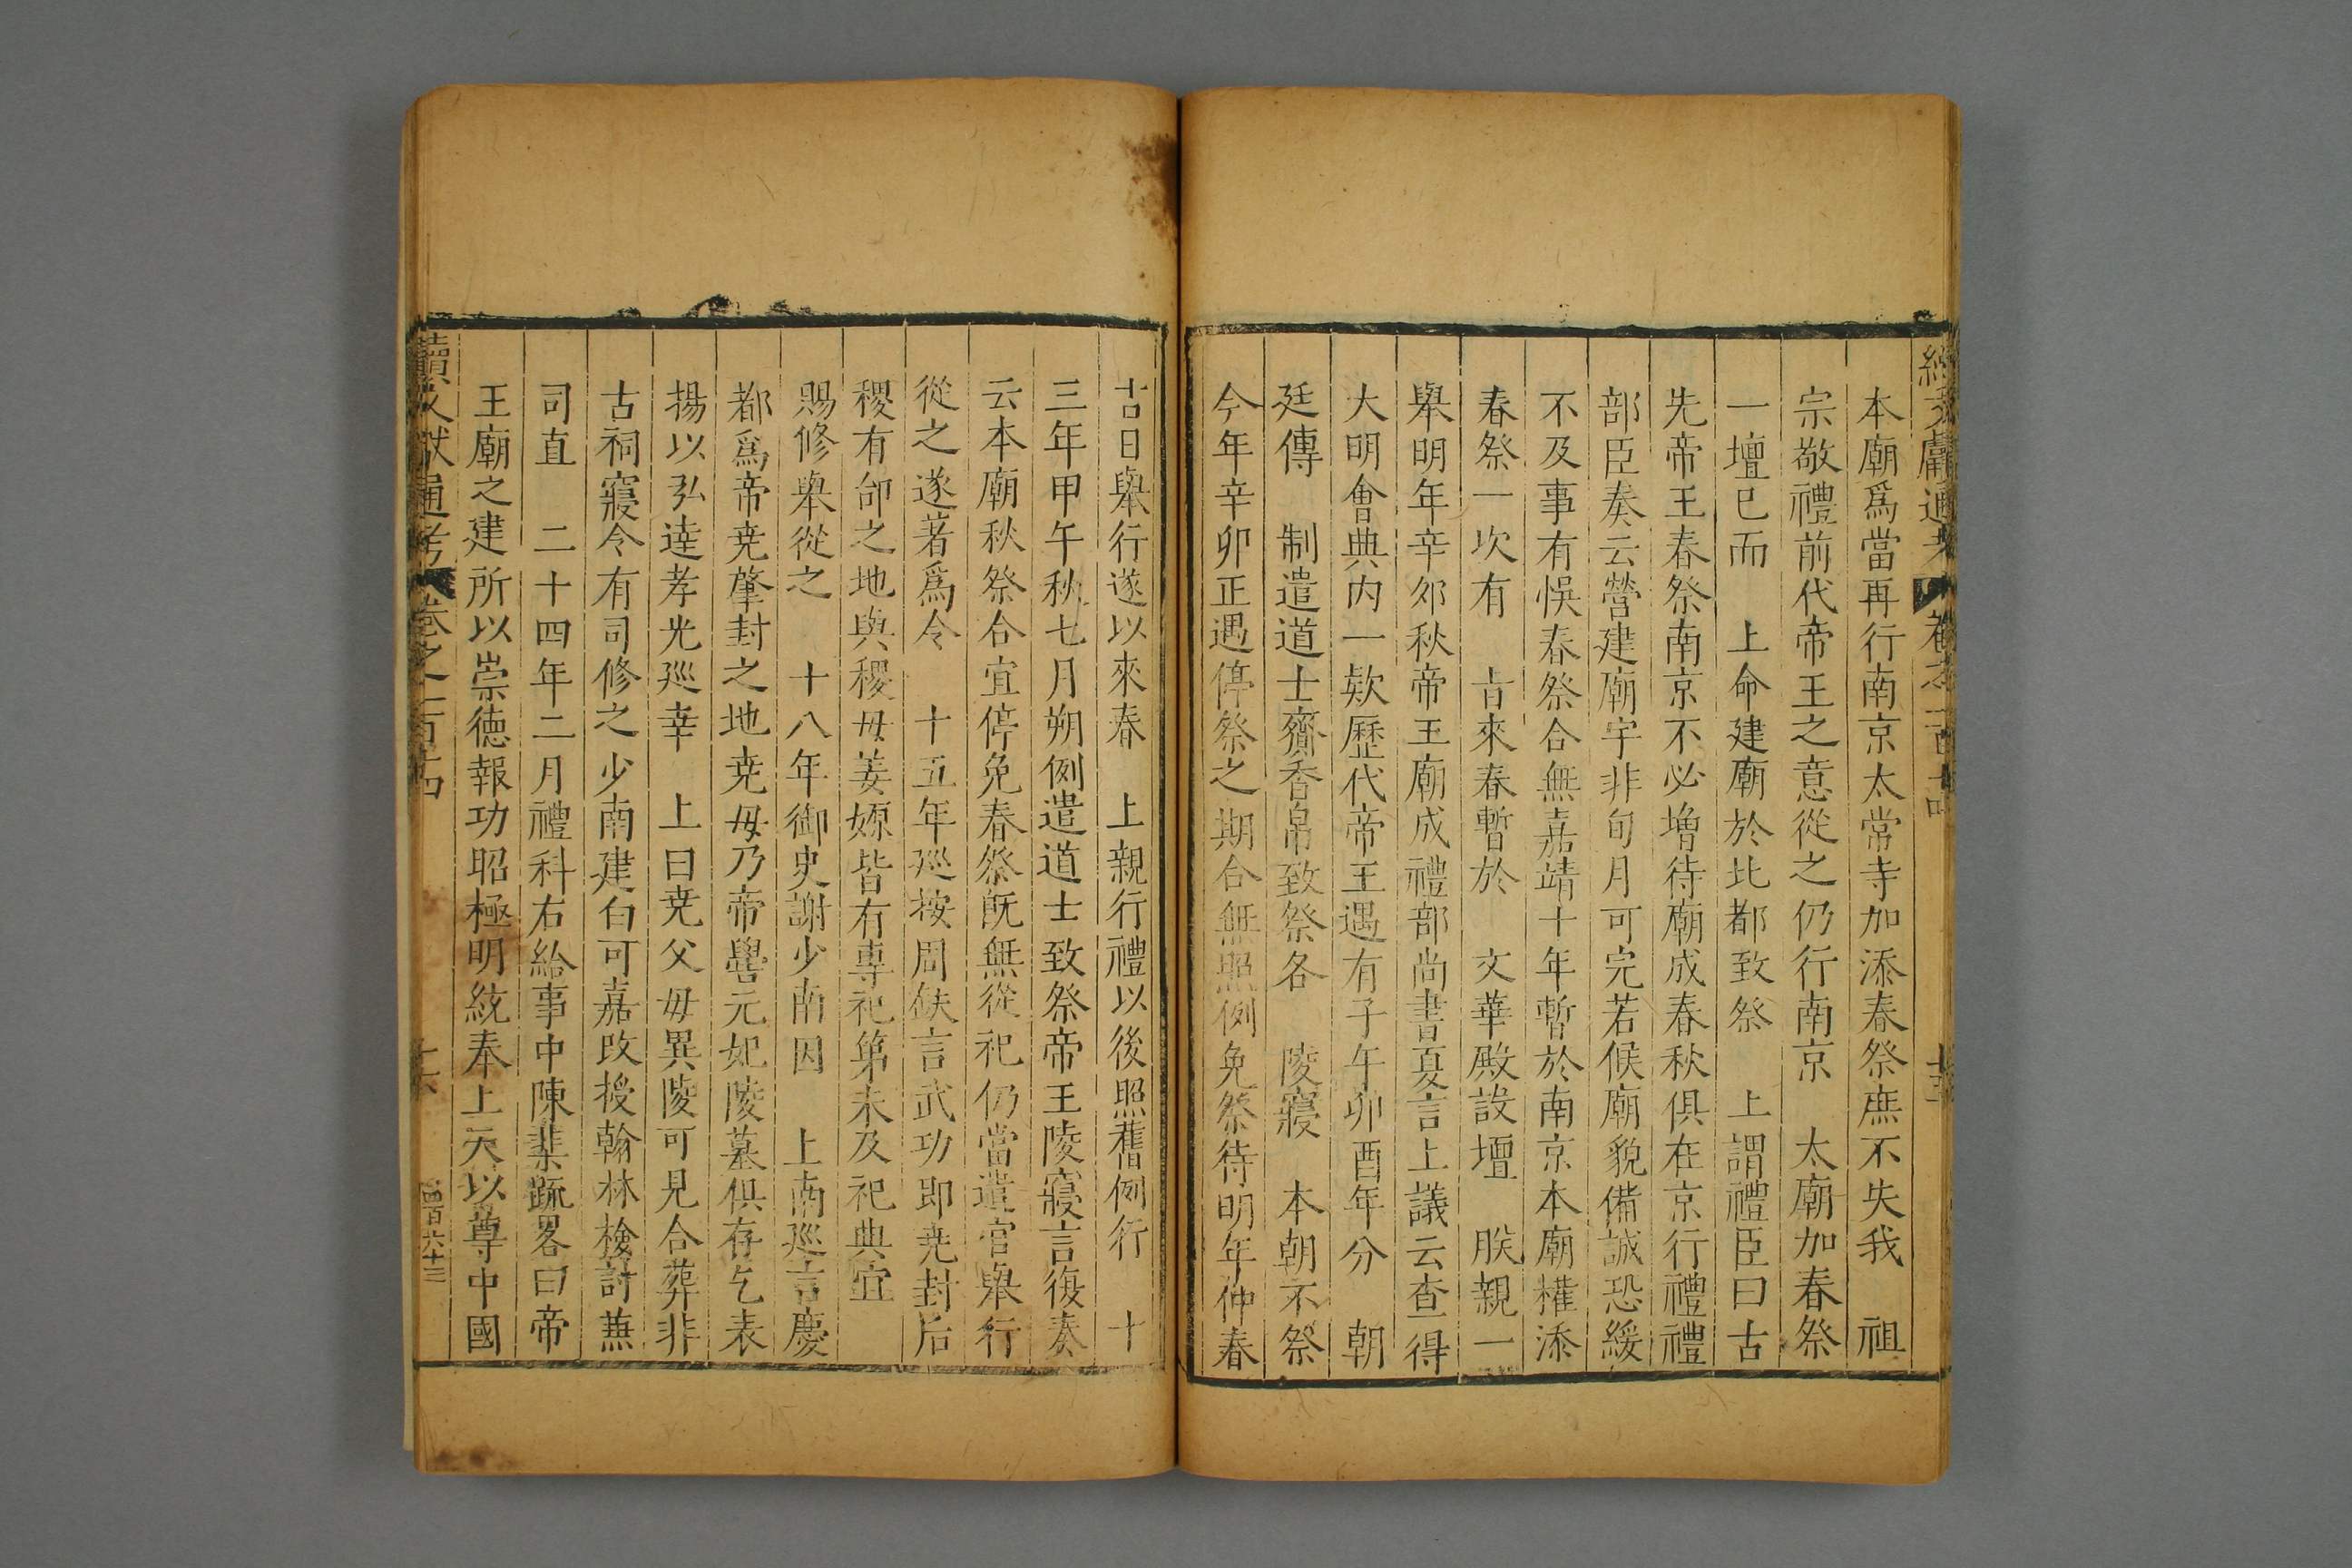 續文獻通考 卷之一百十四
本廟爲當再行南京太常寺加添春祭庶不失我 祖
宗敬禮前代帝王之意從之仍行南京 太廟加春祭
一壇已而 上命建廟於北都致祭 上謂禮臣曰古
先帝王春祭南京不必增待廟成春秋俱在京行禮禮
部臣奏云營建廟宇非旬月可完若候廟貌備誠恐緩
不及事有悞春祭合無嘉靖十年暫於南京本廟權添
春祭一次有 旨來春暫於 文華殿設壇 朕親一
舉明年辛卯秋帝王廟成禮部尚書夏言上議云查得
大明會典内一欵歷代帝王遇有子午卯酉年分 朝
廷傳 制遣道士齎香帛致祭各 陵寢 本朝不祭
今年辛卯正遇停祭之期合無照例免祭待明年仲春
吉日舉行遂以來春 上親行禮以後照舊例行 十
三年甲午秋七月朔例遣道士致祭帝王陵寢言復奏
云本廟秋祭合宜停免春祭旣無從祀仍當遣官舉行
從之遂著爲令 十五年巡按周鈇言武功即尭封后
稷有邰之地與稷母姜嫄皆有專祀第未及祀典宜
賜修舉從之 十八年御史謝少南因 上南巡言慶
都爲帝尭肇封之地尭母乃帝嚳元妃陵墓俱存乞表
揚以弘達孝光巡幸 上曰尭父母異陵可見合葬非
古祠寢令有司修之少南建白可嘉改授翰林檢討蕪
司直 二十四年二月禮科右給事中陳棐䟽畧曰帝
王廟之建所以崇德報功昭極明統奉上天以尊中國
續文獻通考 卷之一百十四 十六